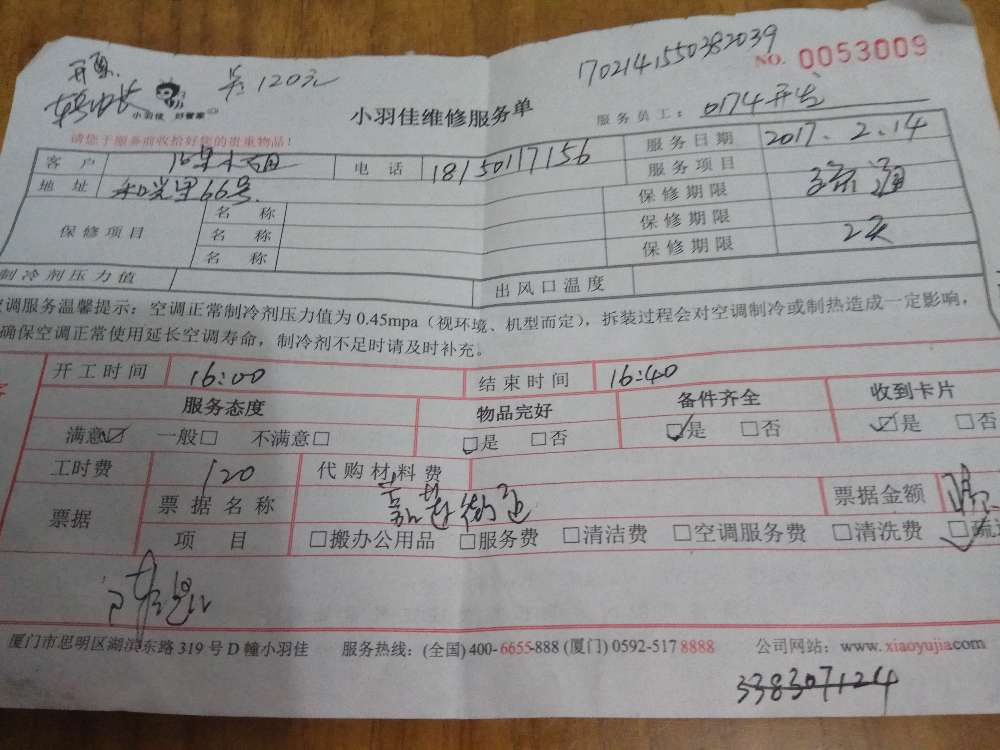 1702141550382039
NO. 0053009
120元
小羽佳 好管家
小羽佳维修服务单
服务员工: 0174
请您于服务前收拾好您的贵重物品!
客 户 电 话 18150117156 服务日期 2017.2.14
地 址 66号 服务项目 疏通
保修项目 名 称 保修期限
名 称 保修期限 2天
名 称 保修期限
制冷剂压力值 出风口温度
调服务温馨提示: 空调正常制冷剂压力值为 0.45mpa (视环境、机型而定), 拆装过程会对空调制冷或制热造成一定影响,
确保空调正常使用延长空调寿命, 制冷剂不足时请及时补充。
开工时间 16:00 结束时间 16:40
服务态度 物品完好 备件齐全 收到卡片
满意☑ 一般□ 不满意□ □是 □否 ☑是 □否 ☑是 □否
工时费 120 代购材料费
票据 票据名称 街道 票据金额
项 目 □搬办公用品 □服务费 □清洁费 □空调服务费 □清洗费 ☑疏
厦门市思明区湖滨东路 319 号 D 幢小羽佳 服务热线: (全国) 400-6655-888 (厦门) 0592-517 8888 公司网站: www.xiaoyujia.com
338307124